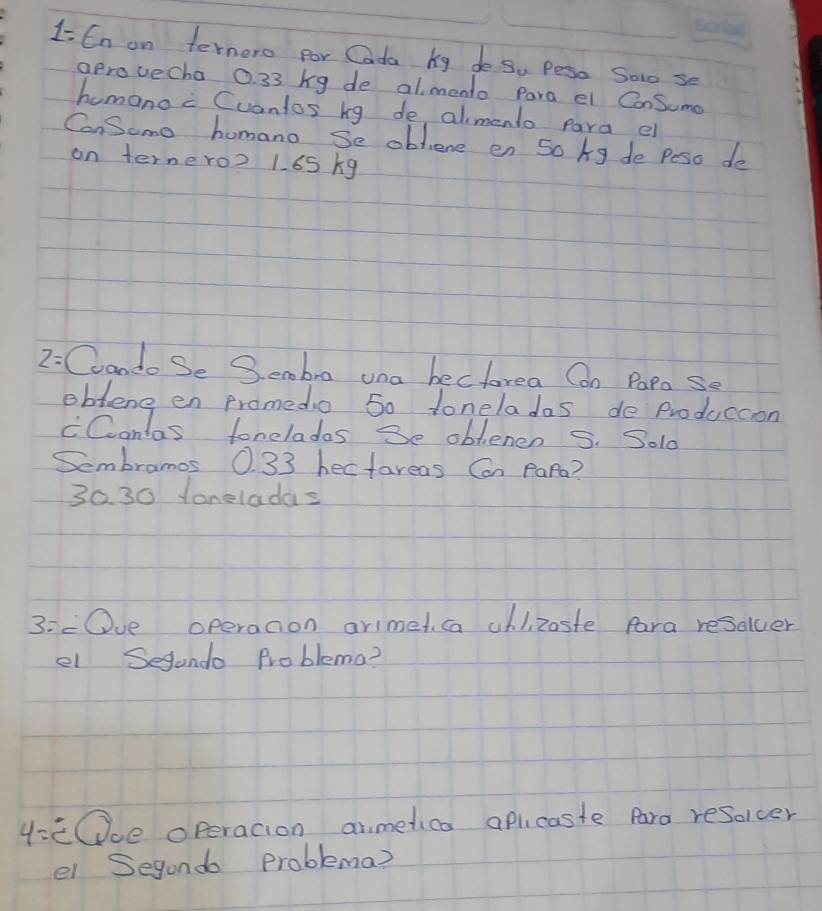 1= En on ternero por Cada kg de su peso Solo se
aprovecha 0.33 kg de alimento Para el Consumo
humano ¿ Cuantos kg de alimento para el
Consumo humano Se obtiene en 50 kg de peso de
on ternero? 1.65 kg
2= Cuando Se Siembra una hectarea Con Papa se
obteng en promedio 50 toneladas de produccion
¿Cuantas toneladas Se obtienen Si Solo
Sembramos 0.33 hectareas Con papa?
30.30 toneladas
3= ¿Que operacion arimetica utilizaste Para resolver
el Segundo Problema?
4= ¿Que operacion arimetica aplicaste Para resolver
el Segundo problema?